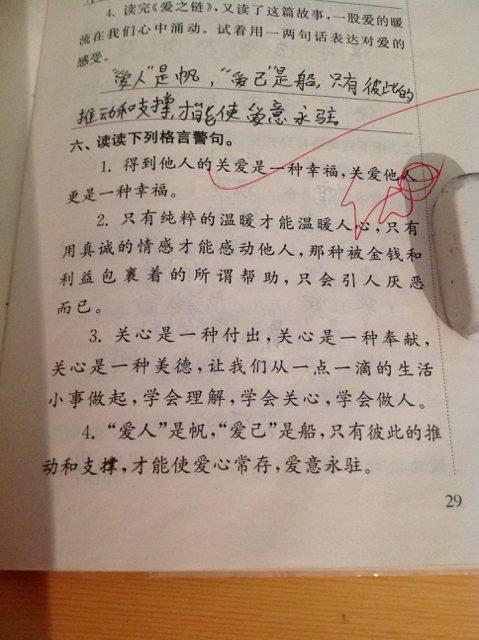 4. 读完《爱之链》,又读了这篇故事,一股爱的暖
流在我们心中涌动。试着用一两句话表达对爱的
感受。
“爱人”是帆,“爱己”是船,只有彼此的
推动和支撑,才能使爱意永驻。
六、读读下列格言警句。
1. 得到他人的关爱是一种幸福,关爱他人
更是一种幸福。
2. 只有纯粹的温暖才能温暖人心,只有
用真诚的情感才能感动他人,那种被金钱和
利益包裹着的所谓帮助,只会引人厌恶
而已。
3. 关心是一种付出,关心是一种奉献,
关心是一种美德,让我们从一点一滴的生活
小事做起,学会理解,学会关心,学会做人。
4. “爱人”是帆,“爱己”是船,只有彼此的推
动和支撑,才能使爱心常存,爱意永驻。
29